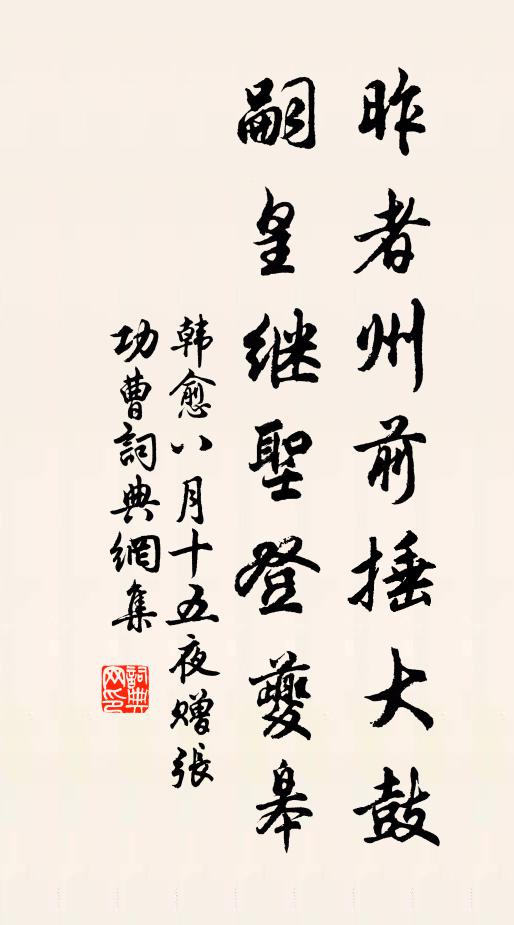 昨者州前捶大鼓
嗣皇继聖登夔皋
韩愈八月十五夜赠張
功曹詞典網集
詞典網印